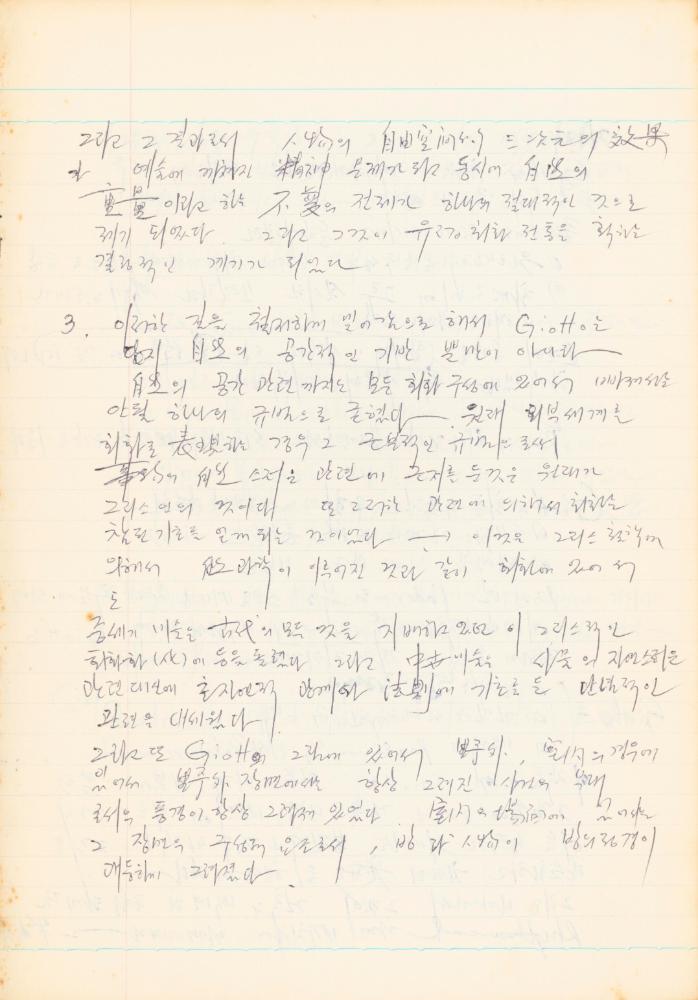 그리고 그 결과로서 人物의 自由空間속의 三次元의 效果
가 예술에 까지 精神 문제가 되고 동시에 自然의
重量이라고 하는 不變의 전제가 하나의 절대적인 것으로
제기 되었다. 그리고 그것이 유럽 회화 전통을 확하는
결정적인 계기가 되었다
3. 이러한 길을 철저하게 밀어감으로 해서 Giotto는
단지 自然의 공간적인 기반 뿐만이 아니라
自然의 공간 관련까지도 모든 회화 구성에 있어서 빠져서는
안될 하나의 규범으로 굳혔다 — 원래 외부세계를
회화로 表現하는 경우 그 근본적인 규범으로서
事物의 自然스러운 관련에 근거를 둔것은 원래가
그리스인의 것이다 또 그러한 관련에 의해서 회화는
참된 기초를 얻게 되는 것이었다 → 이것은 그리스 철학에
의해서 自然과학이 이루어진 것과 같이 회화에 있어서
도
중세기 미술은 古代의 모든 것을 지배하고 있던 이 그리스적인
회화화(化)에 등을 돌렸다 그리고 中世미술은 사물의 자연스러운
관련 대신에 초자연적 관계와 法則에 기초로 둔 관념적인
관련을 내세웠다
그리고 또 Giotto의 그림에 있어서 野外, 室内의 경우에
있어서 野外 장면에서는 항상 그려진 사건의 무대
로서의 풍경이 항상 그려져 있었다. 室内의 場面에 있어서는
그 장면의 구성적 요소로서, 방과 人物이 방의 광경이
대등하게 그려졌다.